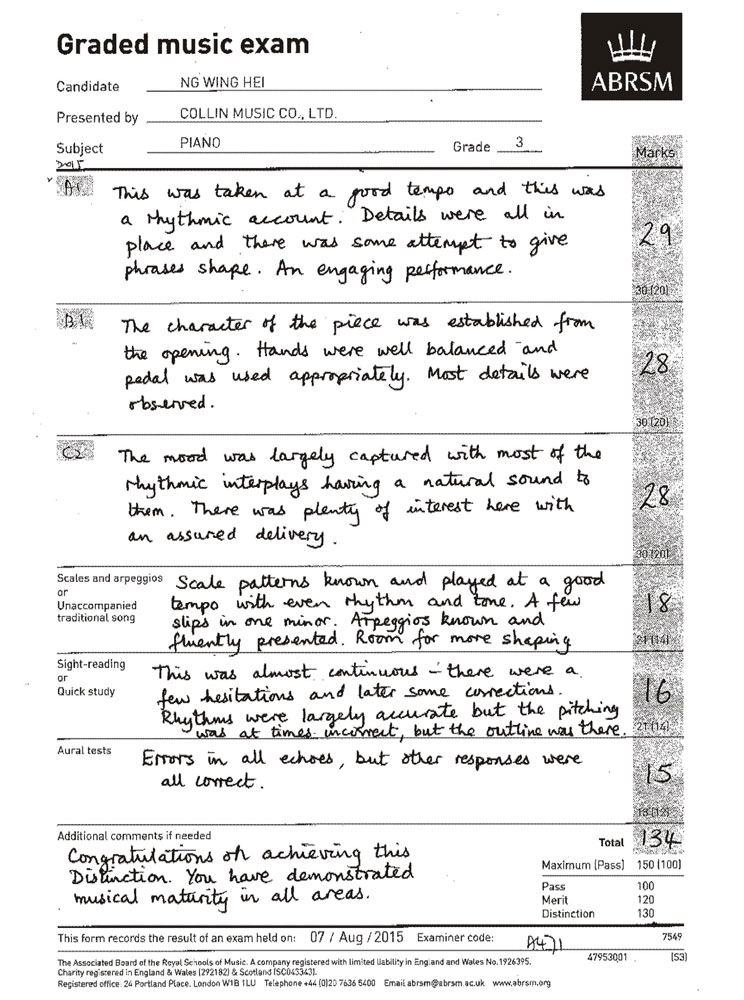 Graded music exam
ABRSM
Candidate NG WING HEI
Presented by COLLIN MUSIC CO., LTD.
Subject PIANO Grade 3
Marks
2015
A1
This was taken at a good tempo and this was
a rhythmic account. Details were all in
place and there was some attempt to give
phrases shape. An engaging performance.
29
30 (20)
B1
The character of the piece was established from
the opening. Hands were well balanced and
pedal was used appropriately. Most details were
observed.
28
30 (20)
C2
The mood was largely captured with most of the
rhythmic interplays having a natural sound to
them. There was plenty of interest here with
an assured delivery.
28
30 (20)
Scales and arpeggios
or
Unaccompanied
traditional song
Scale patterns known and played at a good
tempo with even rhythm and tone. A few
slips in one minor. Arpeggios known and
fluently presented. Room for more shaping
18
21 (14)
Sight-reading
or
Quick study
This was almost continuous – there were a
few hesitations and later some corrections.
Rhythms were largely accurate but the pitching
was at times incorrect, but the outline was there.
16
21 (14)
Aural tests
Errors in all echoes, but other responses were
all correct.
15
18 (12)
Additional comments if needed
Congratulations on achieving this
Distinction. You have demonstrated
musical maturity in all areas.
Total 134
Maximum (Pass) 150 (100)
Pass 100
Merit 120
Distinction 130
This form records the result of an exam held on: 07 / Aug / 2015 Examiner code: A471 7549
47953001 (S3)
The Associated Board of the Royal Schools of Music. A company registered with limited liability in England and Wales No.1926395.
Charity registered in England & Wales (292182) & Scotland (SC043343).
Registered office: 24 Portland Place, London W1B 1LU Telephone +44 (0)20 7636 5400 Email abrsm@abrsm.ac.uk www.abrsm.org